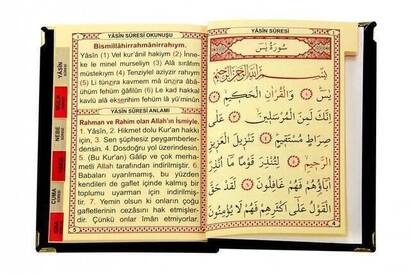 YÂSÎN SÛRESİ OKUNUŞU
Bismillâhirrahmânirrahıym.
YÂSÎN (1) Vel kur'ânil hakiym (2) İnne-
ke le minel murseliyn (3) Alâ sırâtım
müstekıym (4) Tenziylel aziyzir rahym
(5) Li tünzira kavmem mâ ünzira âbâ-
ühüm fehüm gâfilûn (6) Le kad hakkal
kavlü alâ ekserihim fehüm lâ yü'minûn
YÂSÎN SÛRESİ ANLAMI
Rahman ve Rahim olan Allah'ın İsmiyle.
1. Yâsîn, 2. Hikmet dolu Kur'an hakkı
için, 3. Sen şüphesiz peygamberler-
densin. 4. Dosdoğru yol üzerindesin.
5. (Bu Kur'an) Gâlip ve çok merha-
metli Allah tarafından indirilmiştir. 6.
Babaları uyarılmamış, bu yüzden
kendileri de gaflet içinde kalmış bir
toplumu uyarman için indirilmiş-
tir. 7. Yemin olsun ki onların çoğu
gafletlerinin cezâsını hak etmişler-
dir. Çünkü onlar îman etmiyorlar.
5
YÂSÎN
NEBE
CUMA
YÂSÎN SÛRESİ
سُورَةُ يٰسٓ
بِسْمِ اللهِ الرَّحْمٰنِ الرَّحِيمِ
يٰسٓ ﴿١﴾ وَالْقُرْاٰنِ الْحَكِيمِ ﴿٢﴾
اِنَّكَ لَمِنَ الْمُرْسَلِينَ ﴿٣﴾ عَلٰى
صِرَاطٍ مُسْتَقِيمٍ ﴿٤﴾ تَنْزِيلَ الْعَزِيزِ
الرَّحِيمِ ﴿٥﴾ لِتُنْذِرَ قَوْمًا مَا اُنْذِرَ
اٰبَاؤُهُمْ فَهُمْ غَافِلُونَ ﴿٦﴾ لَقَدْ حَقَّ
الْقَوْلُ عَلٰى اَكْثَرِهِمْ فَهُمْ لَا يُؤْمِنُونَ
4